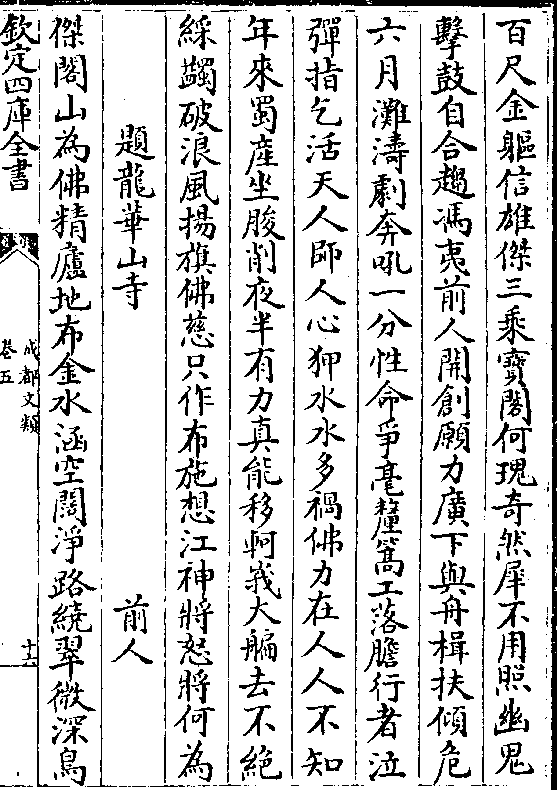 百尺金軀信雄傑三乘寶閣何瑰奇然犀不用照幽鬼
擊鼓自合趨馮夷前人開創願力廣下與舟楫扶傾危
六月灘濤劇奔吼一分性命爭毫釐篙工落膽行者泣
彈指乞活天人師人心狎水水多禍佛力在人人不知
年來蜀產坐朘削夜半有力真能移軻峩大艑去不絕
綵蠲破浪風揚旗佛慈只作布施想江神將怒將何為
題龍華山寺 前人
傑閣山為佛精廬地布金水涵空闊淨路繞翠微深鳥
欽定四庫全書
成都文類
卷五
十六